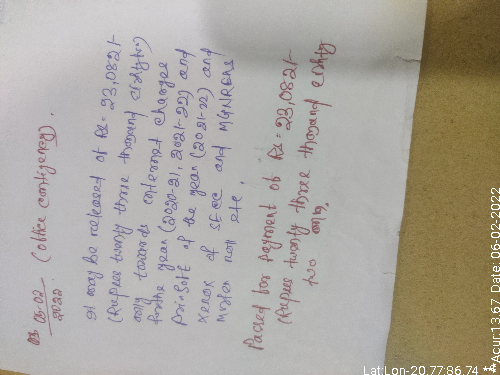 03-02
2022. (office contigency).
It may be released of Rs = 23,082/-
(Rupees twenty three thousand eighty two)
only towards internet charges
for the year (2020-21, 2021-22) and
of the year (2021-22) and
xerox of SECC and MGNREGS
etc.
Passed for payment of Rs = 23,082/-
(Rupees twenty three thousand eighty
two only.
Lat:Lon-20.77:86.74 **Acur:13.67 Date: 06-02-2022 **